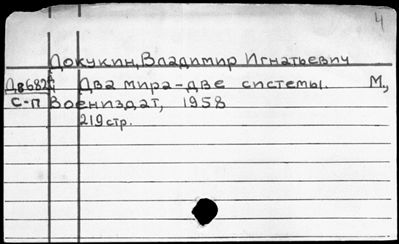 4
Докукин, Владимир Игнатьевич
Д8682 Два мира-две системы. М,
с-п Воениздат, 1958
219 стр.